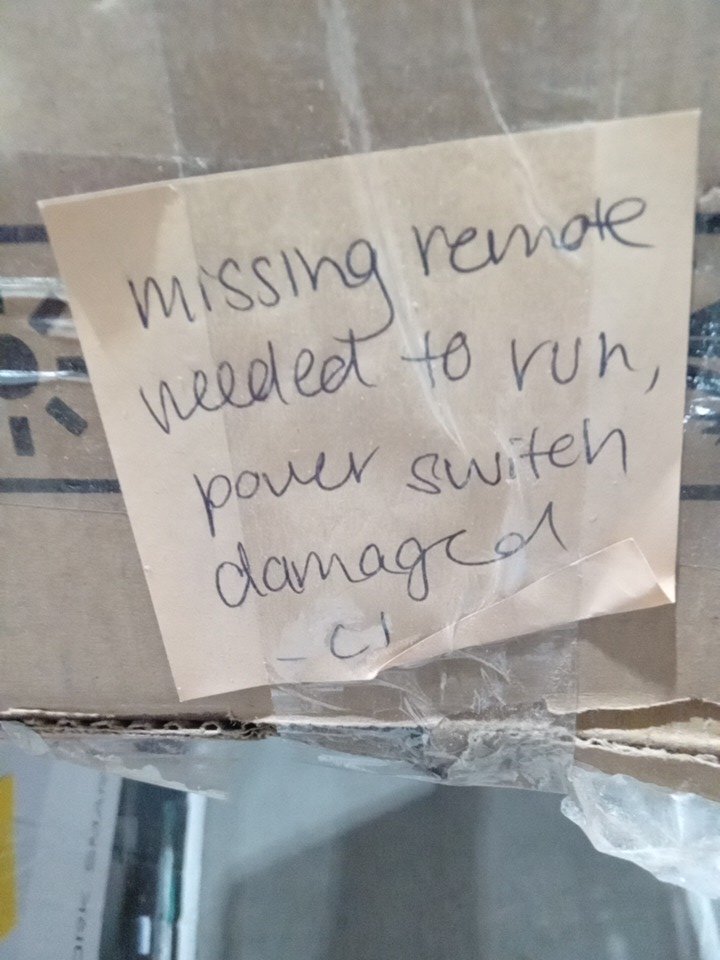 missing remote
needed to run,
power switch
damaged
- CJ